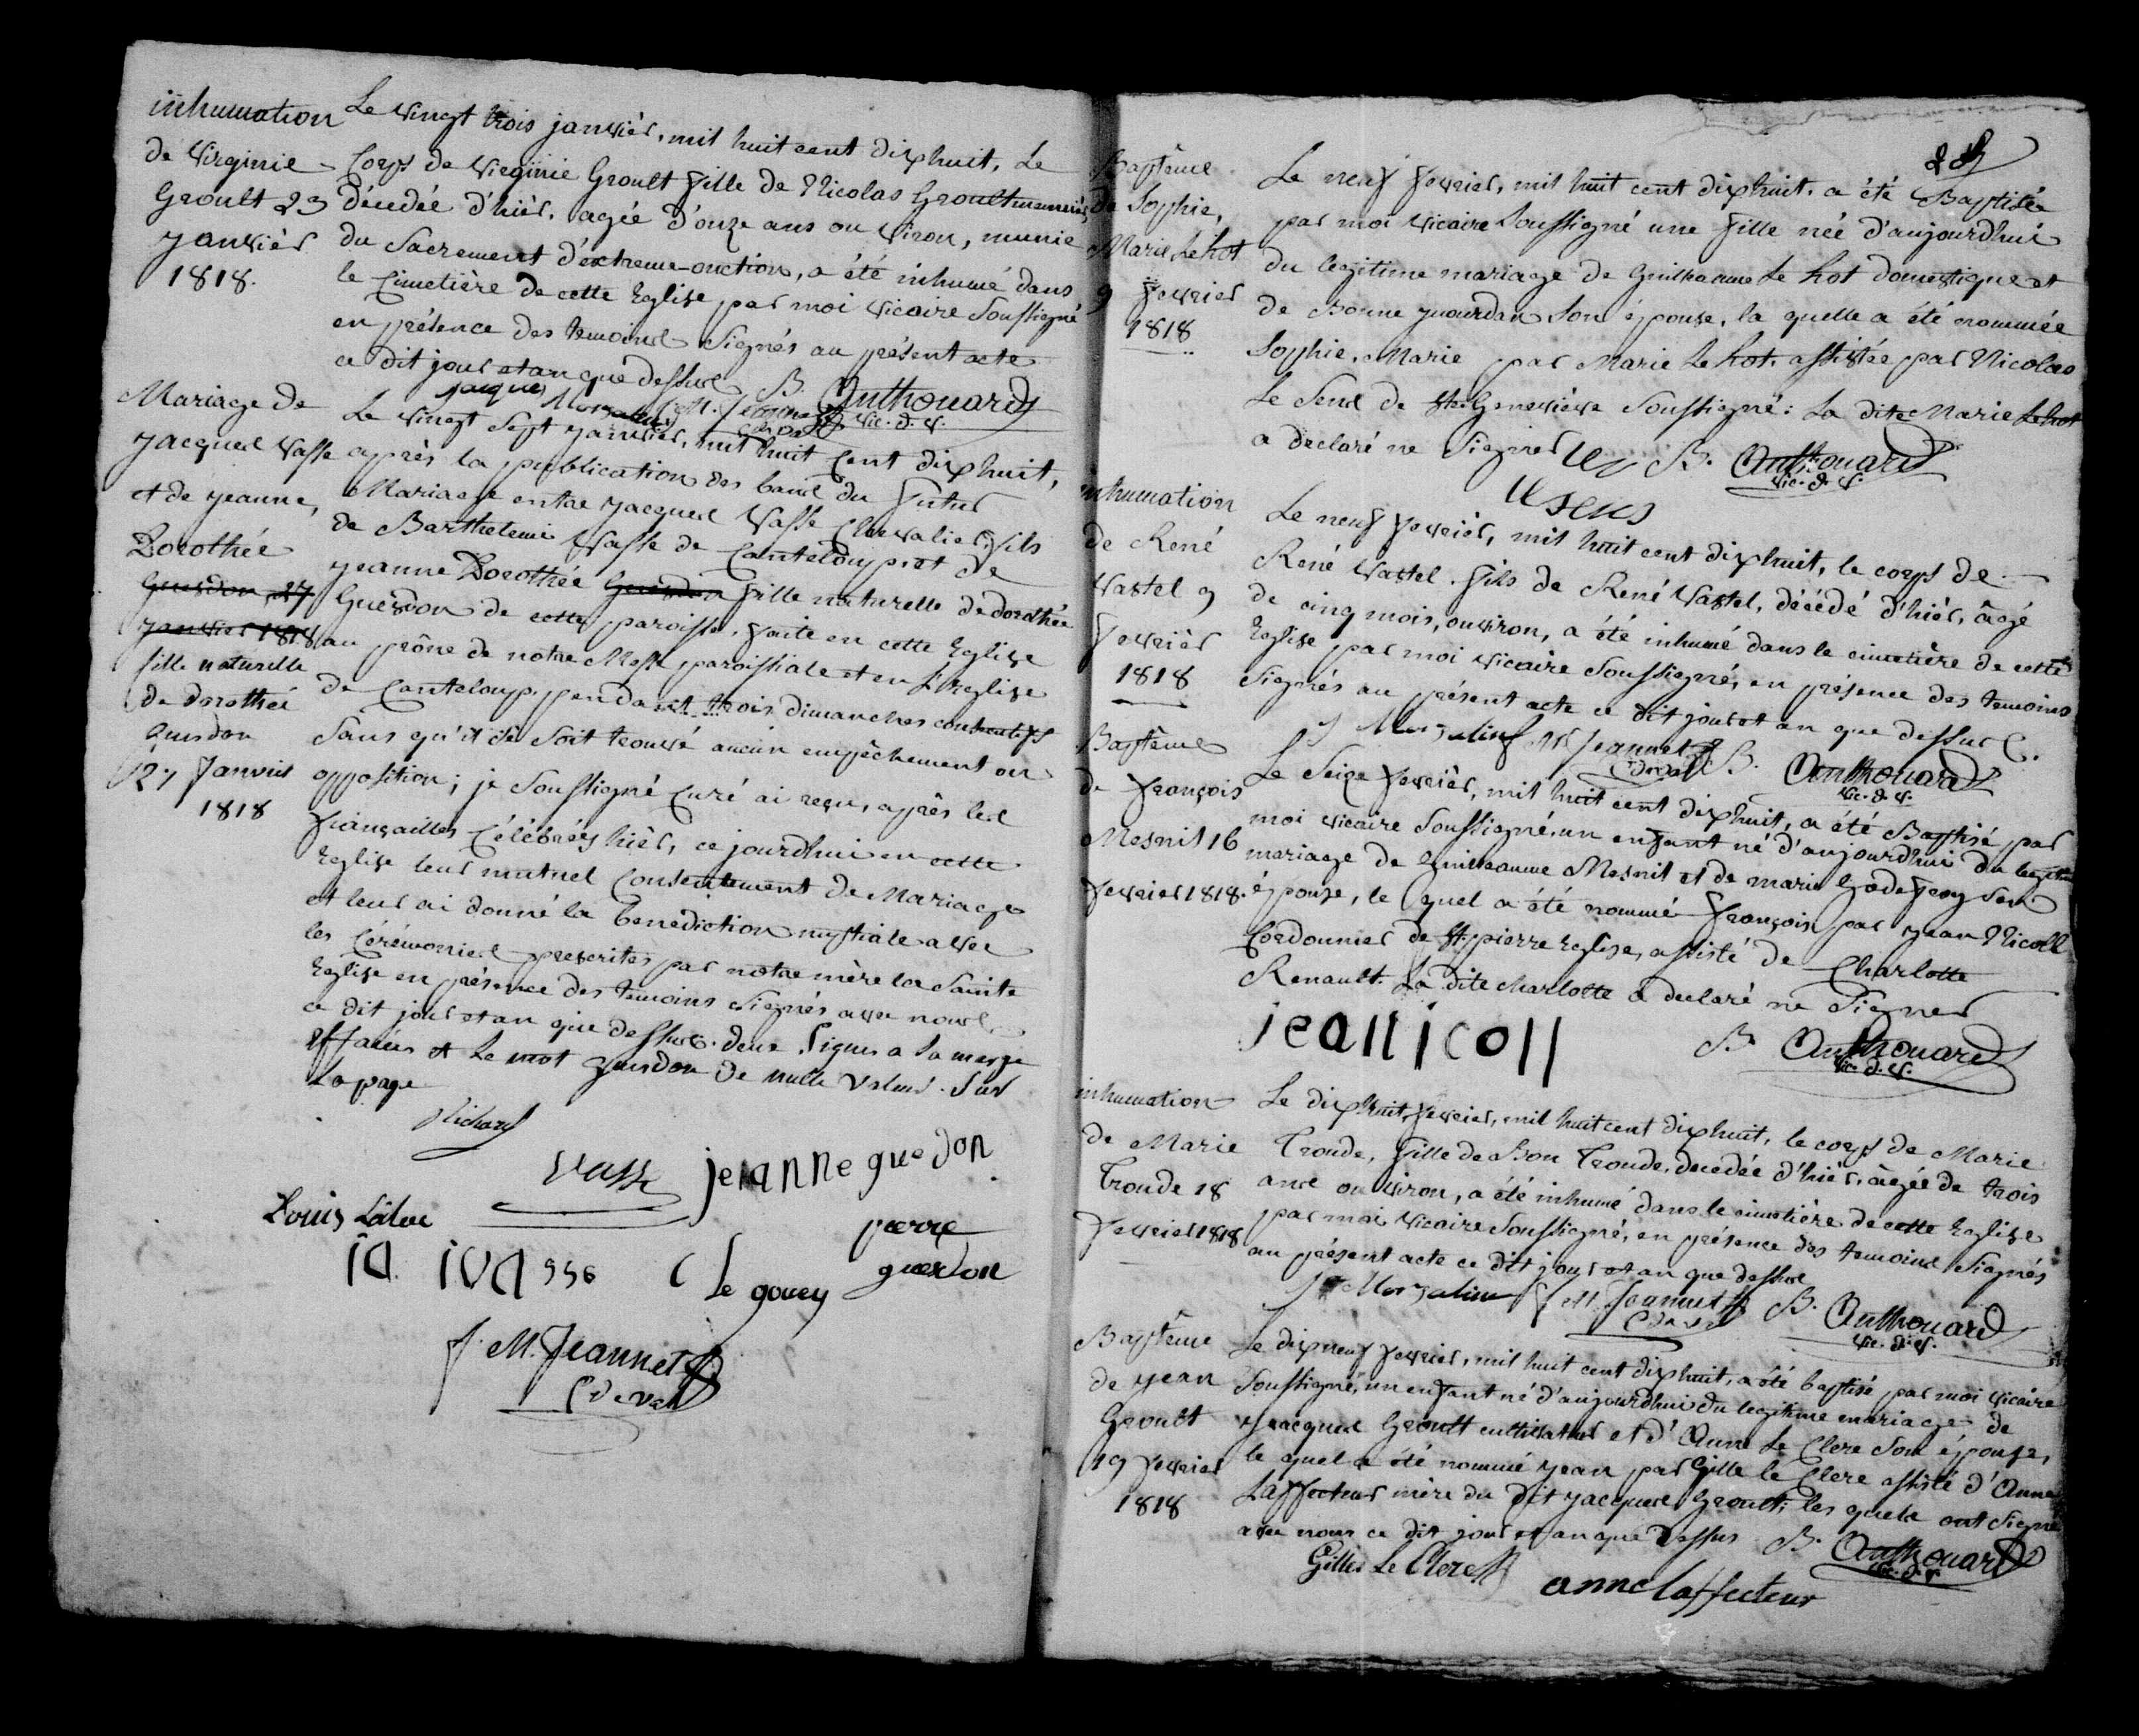 inhumation
de Virginie
Groult 23
janvièr
1818.
Le vingt trois janvièr, mil huit cent dixhuit, Le
Corps de Virginie Groult fille de Nicolas Groult
décédée d'hièr, agée d'onze ans ou viron, munie
du Sacrement d'extreme-onction, a été inhumé dans
le Cimetière de cette Eglise par moi vicaire Soussigné
en présence des temoins Signés au présent acte
ce dit jour et an que dessus B. Anthouard
jacques J. M. Jeannet vic. d. v.
Mariage de
jacques Vasse
et de jeanne,
Dorothée
Guesdon 27
janvier 1818
fille naturelle
de dorothée
Guesdon
27 Janvier
1818
Le vingt Sept janvièr, mil huit Cent dixhuit,
après la publication des bans du futur
Mariage entre jacques Vasse Chevalier, fils
de Barthelemi Vasse de Canteloup, et de
jeanne Dorothée Guesdon fille naturelle de dorothée
Guesdon de cette paroisse, faite en cette Eglise
au prône de notre Messe paroissiale et en l'Eglise
de Canteloup, pendant trois dimanches consecutifs
Sans qu'il se soit trouvé aucun empêchement ou
opposition; je Soussigné Curé ai reçu, après les
fiançailles Célébrées hièr, ce jourdhui en cette
Eglise leur mutuel Consentement de Mariage
et leur ai donné la benediction nuptiale avec
les Cérémonies prescrites par notre mère la Sainte
Eglise en présence des temoins Signés avec nous
ce dit jour et an que dessus. deux lignes a la marge
effacées et Le mot guesdon de nulle valeur. Sur
La page
Richard
Vasse jeanne guedon
Louis
pierre
guesdon
Le gouey
J. M. Jeannet
C de val
Baptême
de Sophie,
Marie Le hot
9 fevrier
1818
Le neuf fevrier, mil huit cent dixhuit, a été Baptisée
par moi vicaire Soussigné une fille née d'aujourdhui
du legitime mariage de Guilleaume Le hot domestique et
de Bonne jourdan Son épouse, la quelle a été nommée
Sophie, Marie par Marie Le hot, assistée par Nicolas
Le Sens de Ste Genevieve Soussigné: La dite Marie Le hot
a declaré ne Signer B. Anthouard
vic. d. v.
le sens
inhumation
de René
Vastel 9
fevrièr
1818
Le neuf fevrièr, mil huit cent dixhuit, le corps de
René Vastel, fils de René Vastel, décédé d'hièr, âgé
de cinq mois, ou viron, a été inhumé dans le cimetière de cette
Eglise par moi vicaire Soussigné, en présence des temoins
Signés au présent acte ce dit jour et an que dessus
J M Jeannet B. Anthouard
vic. d. v.
Baptême
de françois
Mesnil 16
fevrier 1818.
Le Seize fevrièr, mil huit cent dixhuit, a été Baptisé par
moi vicaire Soussigné, un enfant né d'aujourdhui du legitime
mariage de Guilleaume Mesnil et de marie Godefroy Son
épouse, le quel a été nommé françois par jean Nicoll
Cordonnier de St. pierre Eglise, assisté de Charlotte
Renault. La dite charlotte a declaré ne Signer
jean nicoll B. Anthouard
vic. d. v.
inhumation
de Marie
Tronde 18
fevrier 1818
Le dixhuit fevrier, mil huit cent dixhuit, le corps de Marie
Tronde, fille de Bon Tronde, decedée d'hièr, âgée de trois
ans ou viron, a été inhumé dans le cimetière de cette Eglise
par moi vicaire Soussigné, en présence des temoins Signés
au présent acte ce dit jour et an que dessus
J M. Jeannet B. Anthouard
vic. d. v.
Baptême
de jean
Groult
19 fevrier
1818
Le dixneuf fevrier, mil huit cent dixhuit, a été baptisé par moi vicaire
Soussigné, un enfant né d'aujourdhui du legitime mariage de
jacques Groult cultivateur et d'Anne Le Clere Son épouse,
le quel a été nommé jean par Gille le Clere assisté d'Anne
Laffecteur mère du dit jacques Groult; les quels ont Signé
avec nous ce dit jour et an que dessus B. Anthouard
vic. d. v.
Gilles Le Clere anne laffecteur